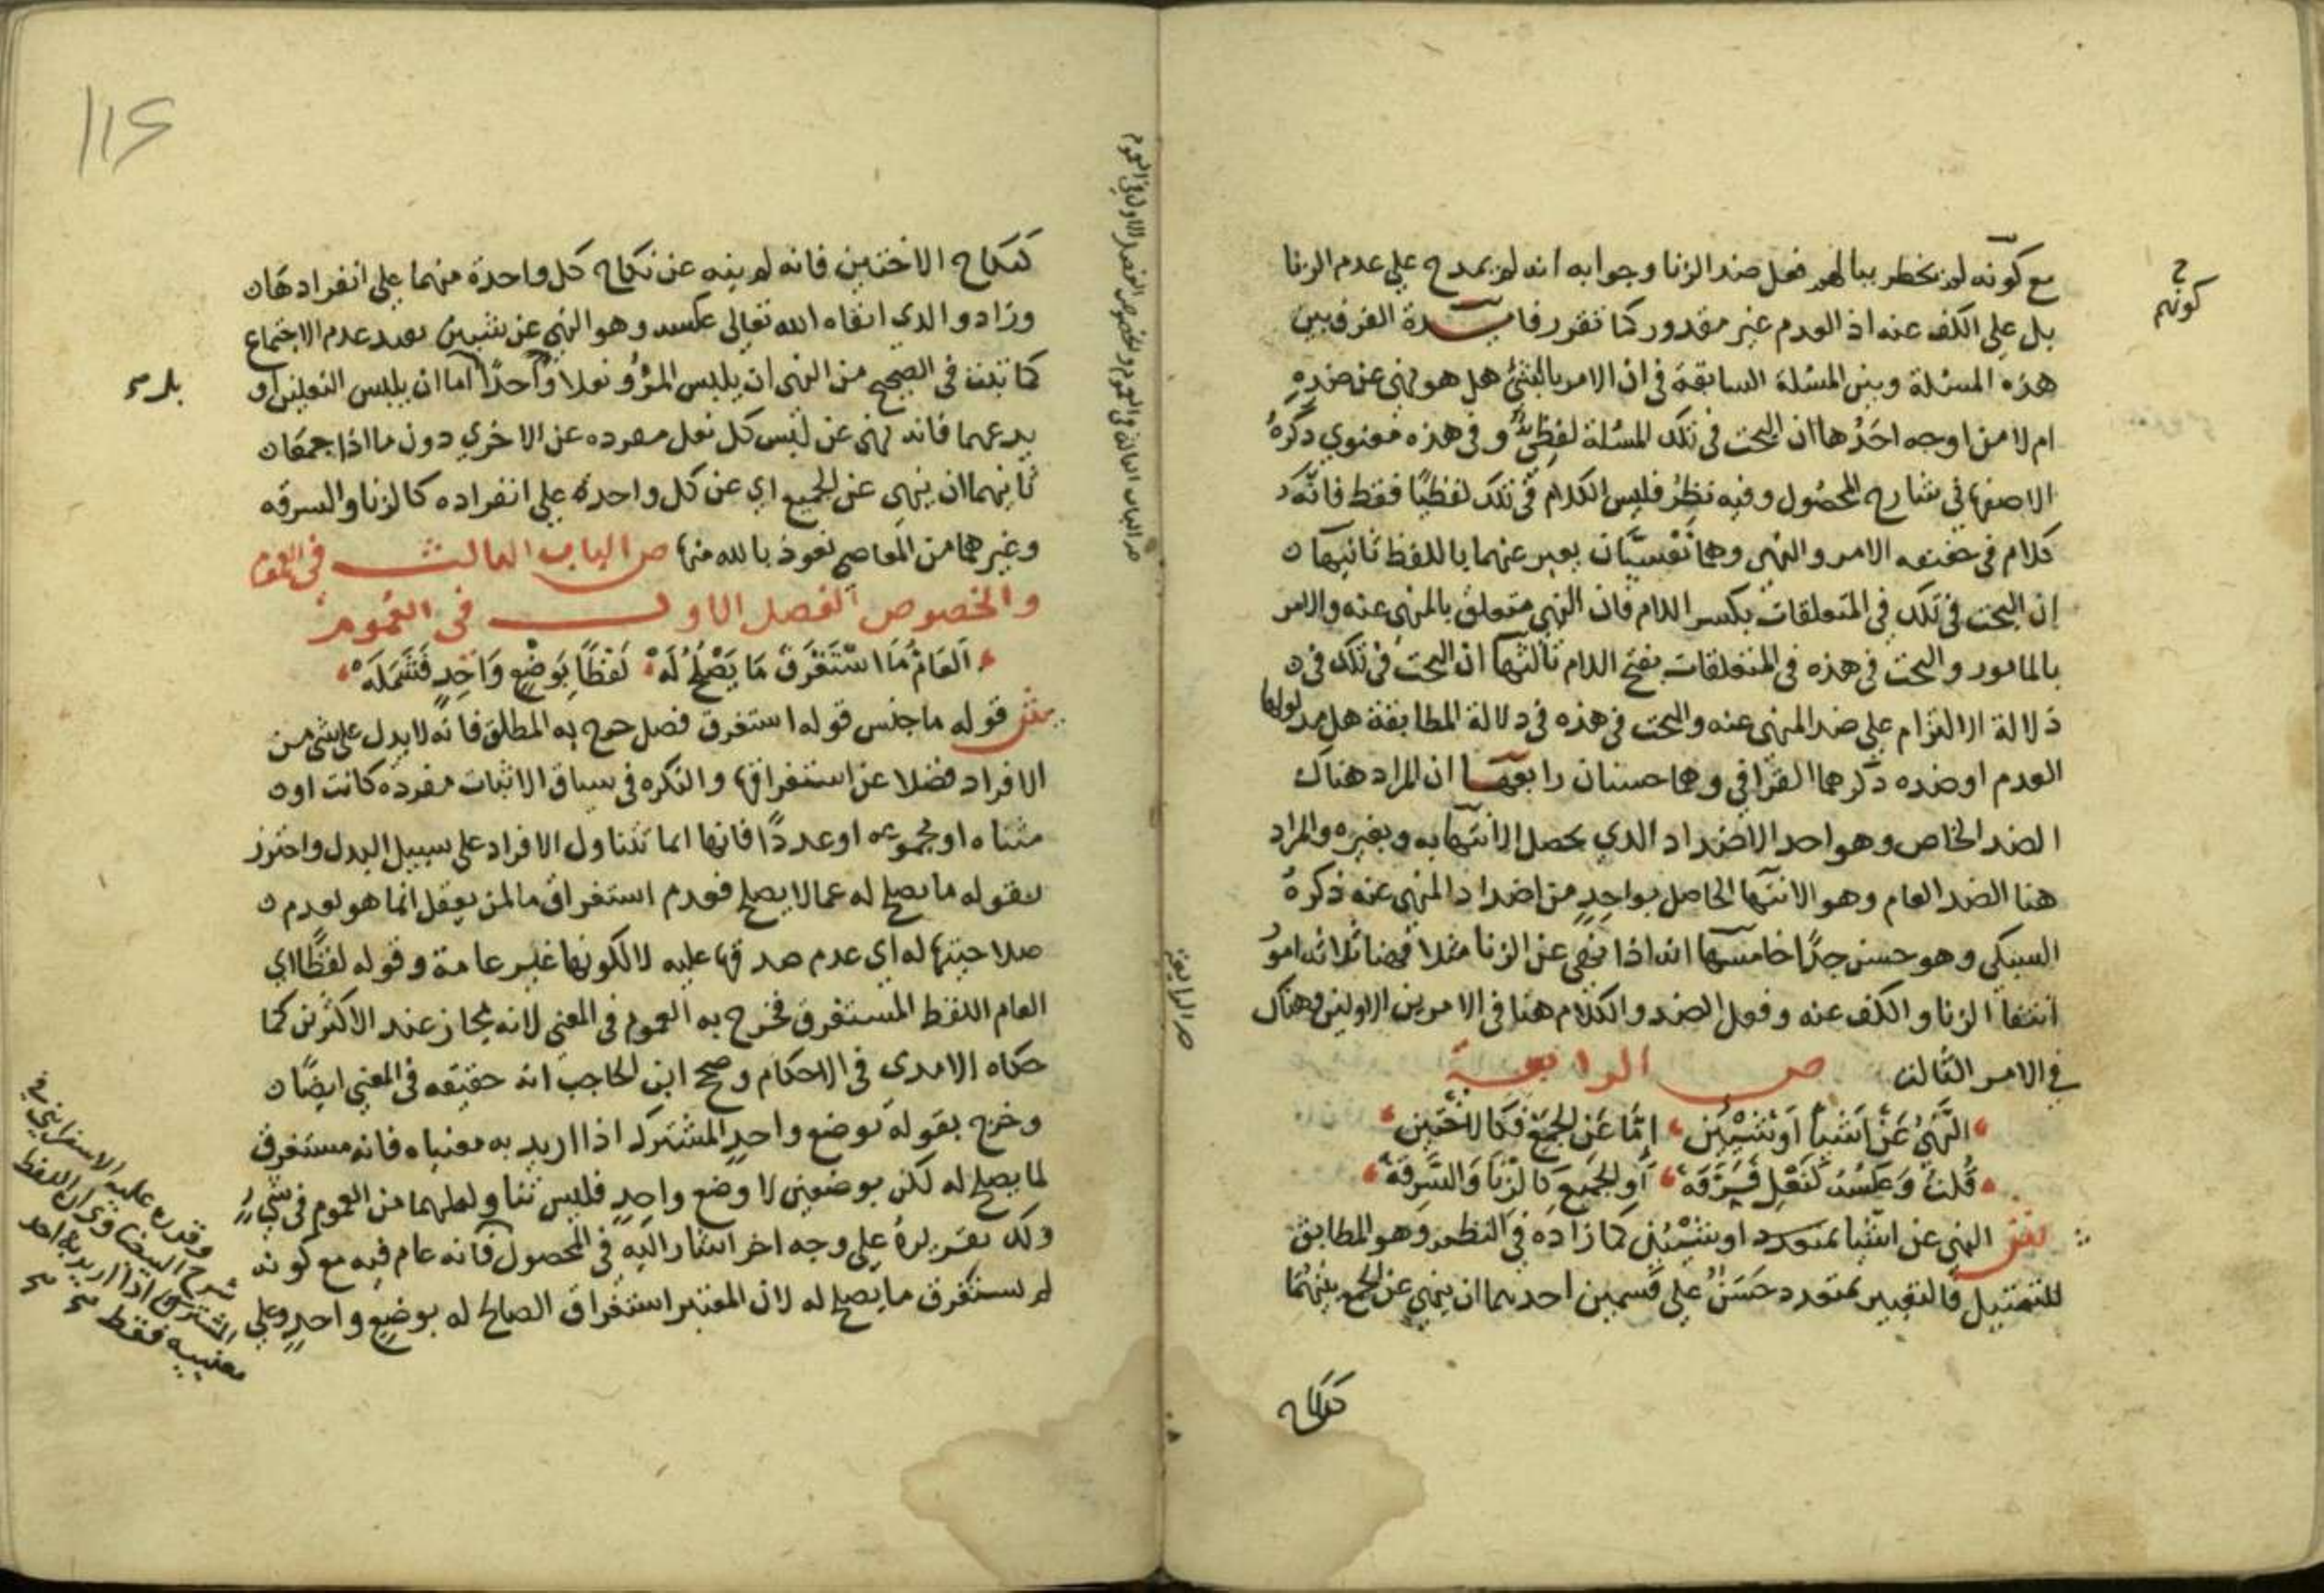 مع كونه لم يخطر ببالهم فعل ضد الزنا وجوابه انه لم يمدح علي عدم الزنا
كونهم
بل علي الكف عنه اذ العدم غير مقدور كما تقرر فايدة الفرق بين
هذه المسئلة وبين المسئلة السابقة في ان الامر بالشئ هل هو نهي عن ضده
ام لا من اوجه احدها ان البحث في تلك المسئلة لفظي وفي هذه معنوي ذكره
الاصفهاني شارح المحصول وفيه نظر فليس الكلام في تلك لفظيا فقط فانه
كلام في حقيقة الامر والنهي وهما نفسيان يعبر عنهما باللفظ ثانيها
ان البحث في تلك في المتعلقات بكسر اللام فان النهي متعلق بالمنهي عنه والامر
بالمامور والبحث في هذه في المتعلقات بفتح اللام ثالثها ان البحث في تلك في
دلالة الالتزام علي ضد المنهي عنه والبحث في هذه في دلالة المطابقة هل مدلولها
العدم او ضده ذكرهما القرافي وهما حسنان رابعها ان المراد هناك
الضد الخاص وهو احد الاضداد الذي يحصل الانتها به وبغيره والمراد
هنا الضد العام وهو الانتها الحاصل بواحد من اضداد المنهي عنه ذكره
السبكي وهو حسن جدا خامسها انه اذا نهي عن الزنا مثلا فهنا ثلاثه امور
انتفا الزنا والكف عنه وفعل الضد والكلام هنا في الامرين الاولين وهناك
في الامر الثالث ص الرابعة
النهي عن اشيا او شيئين اما عن الجمع فكالاختين
قلت وعكسه كنعل فرقه او الجميع كالزنا والسرقة
ش النهي عن اشيا بمتعدد او بشيئين كما زاده في النظم وهو المطابق
للتمثيل فالتعبير بمتعدد حسن علي قسمين احدهما ان ينهي عن الجمع بينهما
كنكاح
ص الرابعة
ص الباب الثالث في العموم والخصوص الفصل الاول في العموم
116
كنكاح الاختين فانه لم ينه عن نكاح كل واحدة منهما علي انفرادها
وزاد والدي ابقاه الله تعالي عكسه وهو النهي عن شيين بقيد عدم الاجتماع
كما ثبت في الصحيح من النهي ان يلبس المرؤ نعلا واحدا اما ان يلبس النعلين او
يدعهما فانه نهي عن لبس كل نعل مفرده عن الاخري دون ما اذا جمعا
ثانيهما ان ينهي عن الجميع اي عن كل واحدة علي انفراده كالزنا والسرقه
وغيرهما من المعاصي نعوذ بالله منها ص الباب الثالث في العموم
والخصوص الفصل الاول في العموم
العام ما استغرق ما يصلح له لفظا بوضع واحد فتشمله
ش قوله ما جنس قوله استغرق فصل خرج به المطلق فانه لا يدل علي شي من
الافراد فضلا عن استغراقها والنكره في سياق الاثبات مفرده كانت او
مثناه او مجموعه او عددا فانها انما تتناول الافراد علي سبيل البدل واحترز
بقوله ما يصلح له عما لا يصلح فعدم استغراق ما لمن يعقل انما هو لعدم
صلاحيتها له اي عدم صدقها عليه لا لكونها غير عامة وقوله لفظا اي
العام اللفظ المستغرق فخرج به العموم في المعني لانه مجاز عند الاكثرين كما
حكاه الامدي في الاحكام وصحح ابن الحاجب انه حقيقه في المعني ايضا
وخرج بقوله بوضع واحد المشترك اذا اريد به معنياه فانه مستغرق
لما يصلح له لكن بوضعين لا وضع واحد فليس تناوله لهما من العموم في شي
ولك تقريره علي وجه اخر اشار اليه في المحصول فانه عام فيه مع كونه
لم يستغرق ما يصلح له لان المعتبر استغراق الصالح له بوضع واحد وعلي
وقدره عليه الاسفرايني في
شرح البيضاوي ان اللفظ
المشترك اذا اريد به احد
معنييه فقط صح